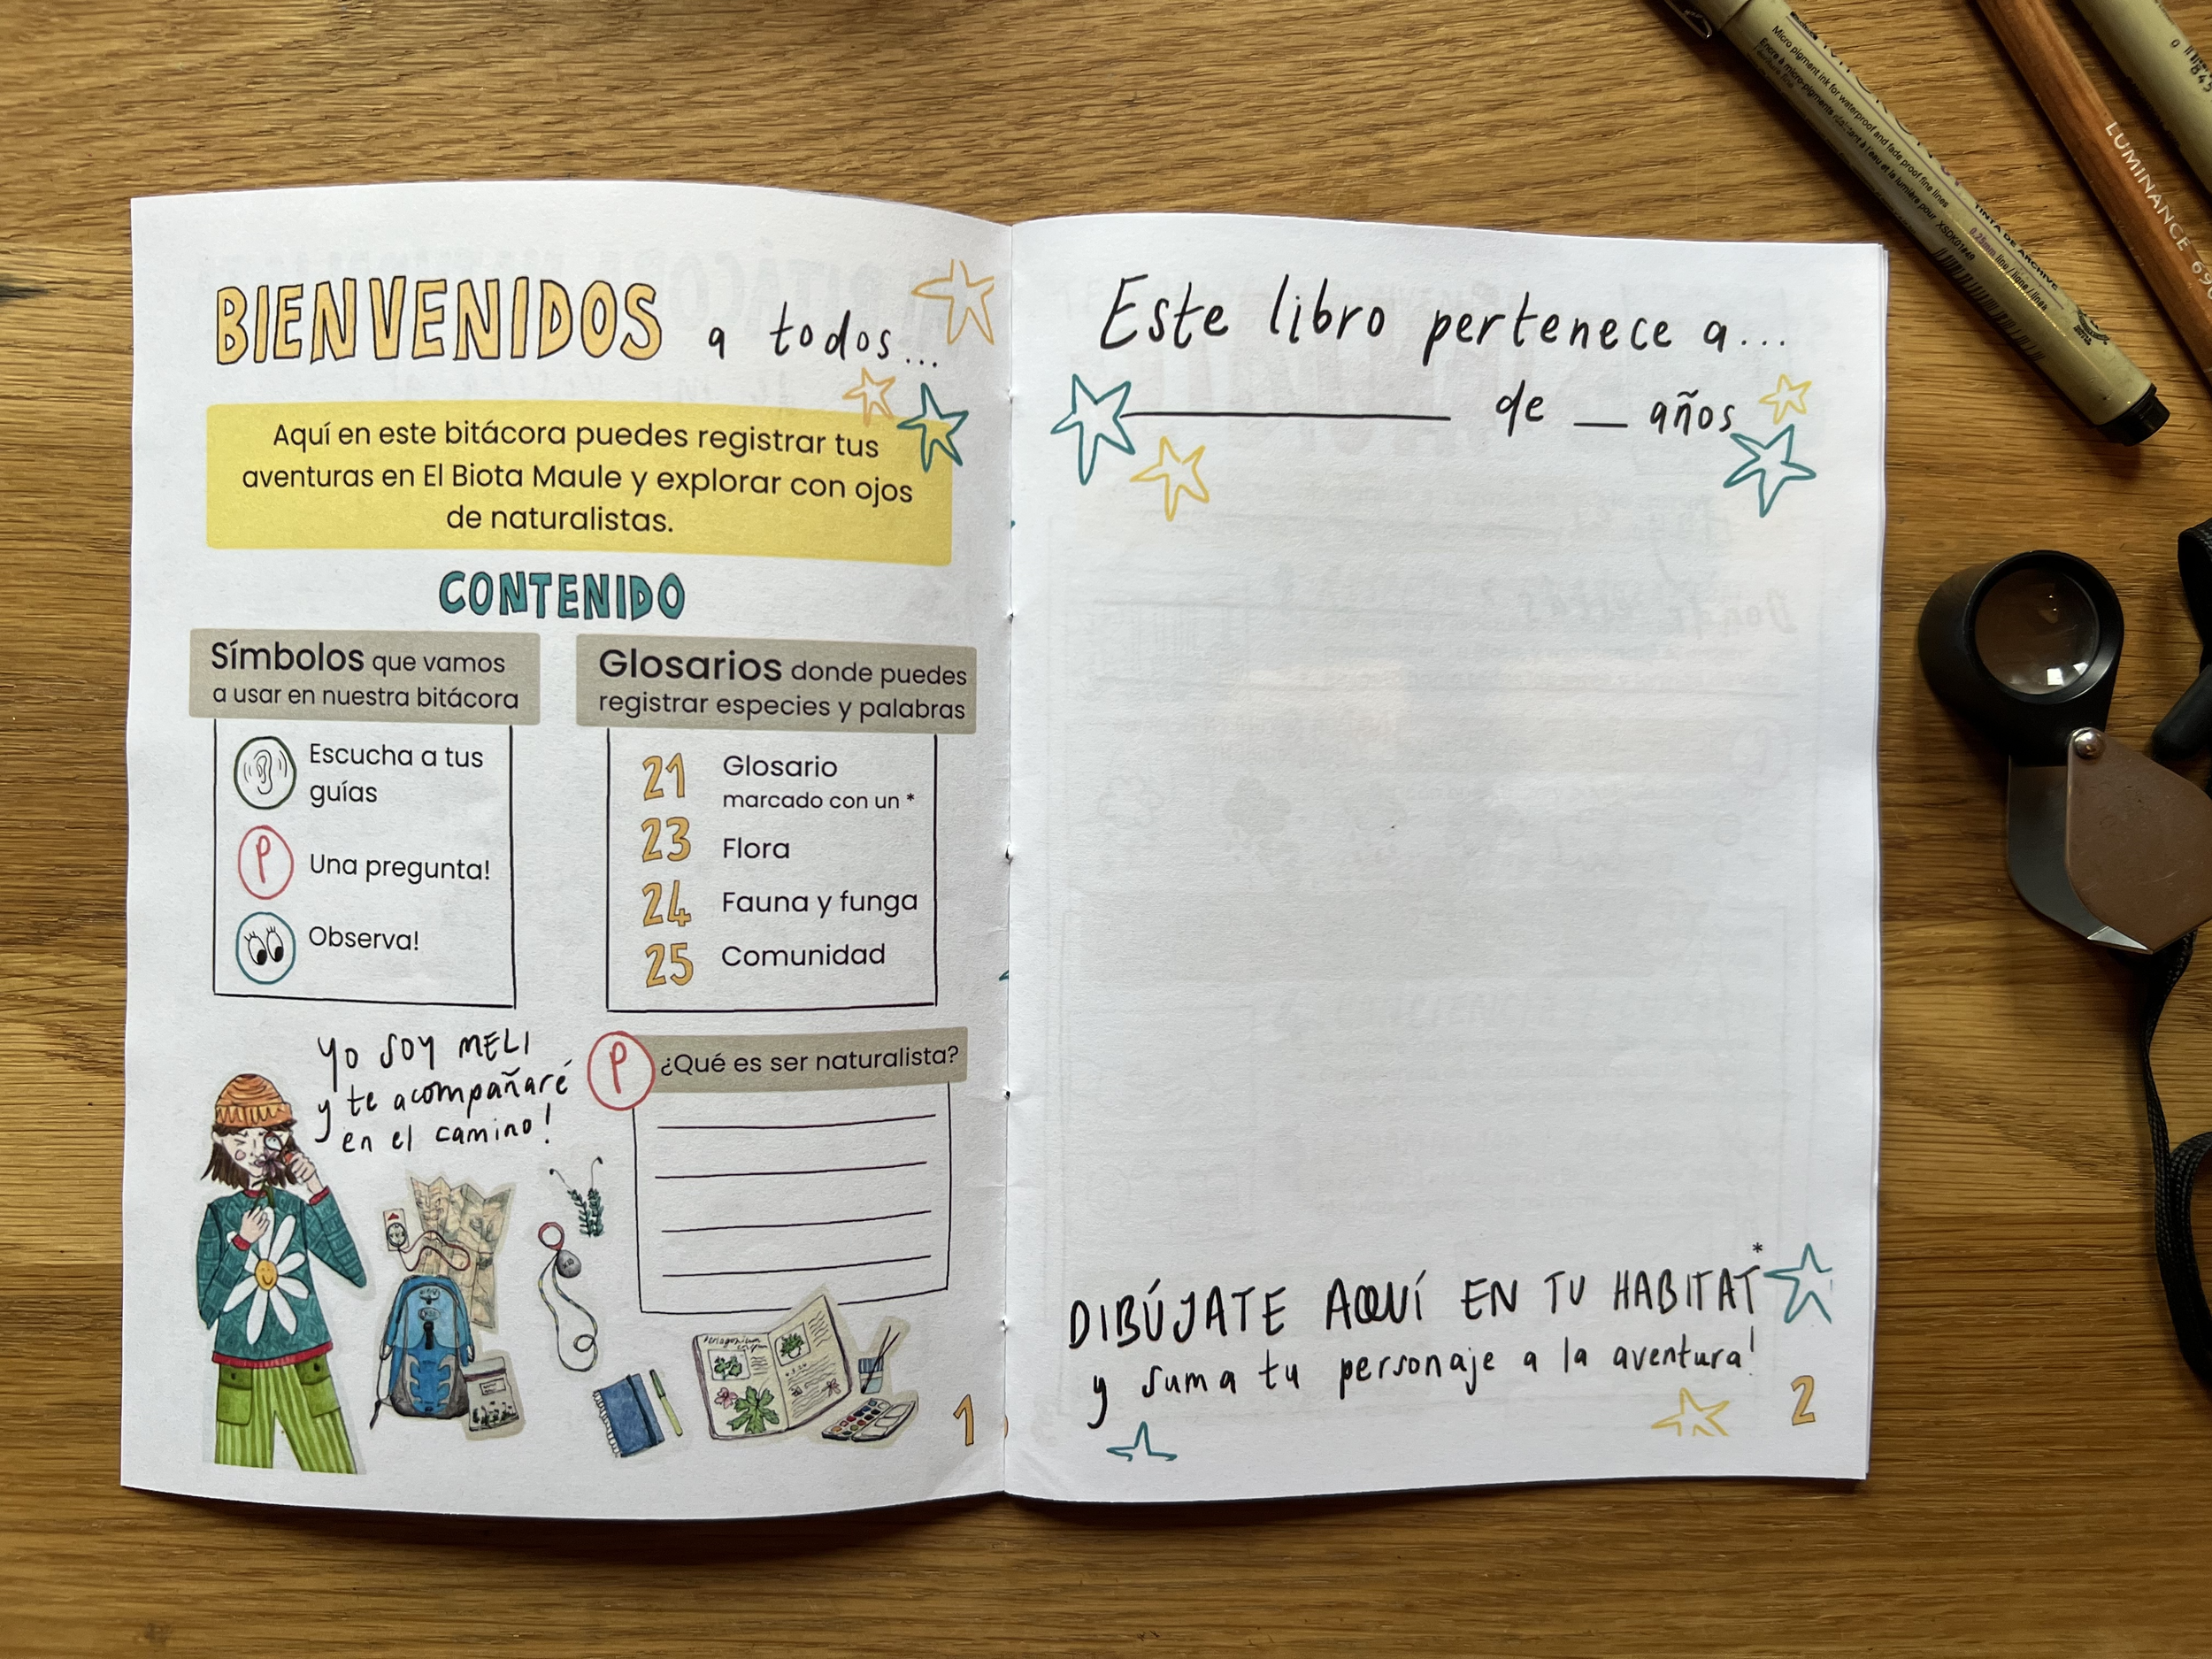 BIENVENIDOS a todos...
Aquí en este bitácora puedes registrar tus
aventuras en El Biota Maule y explorar con ojos
de naturalistas.
CONTENIDO
Símbolos que vamos
a usar en nuestra bitácora
Escucha a tus
guías
P Una pregunta!
Observa!
Glosarios donde puedes
registrar especies y palabras
21 Glosario
marcado con un *
23 Flora
24 Fauna y funga
25 Comunidad
YO SOY MELI
y te acompañaré
en el camino!
P ¿Qué es ser naturalista?
1
Este libro pertenece a...
de __ años
DIBÚJATE AQUÍ EN TU HABITAT*
y suma tu personaje a la aventura!
2
Micro pigment ink for waterproof and fade proof fine lines
XSDK01#49
0.25mm line / ligne / línea
TINTA DE ARCHIVE
LUMINANCE